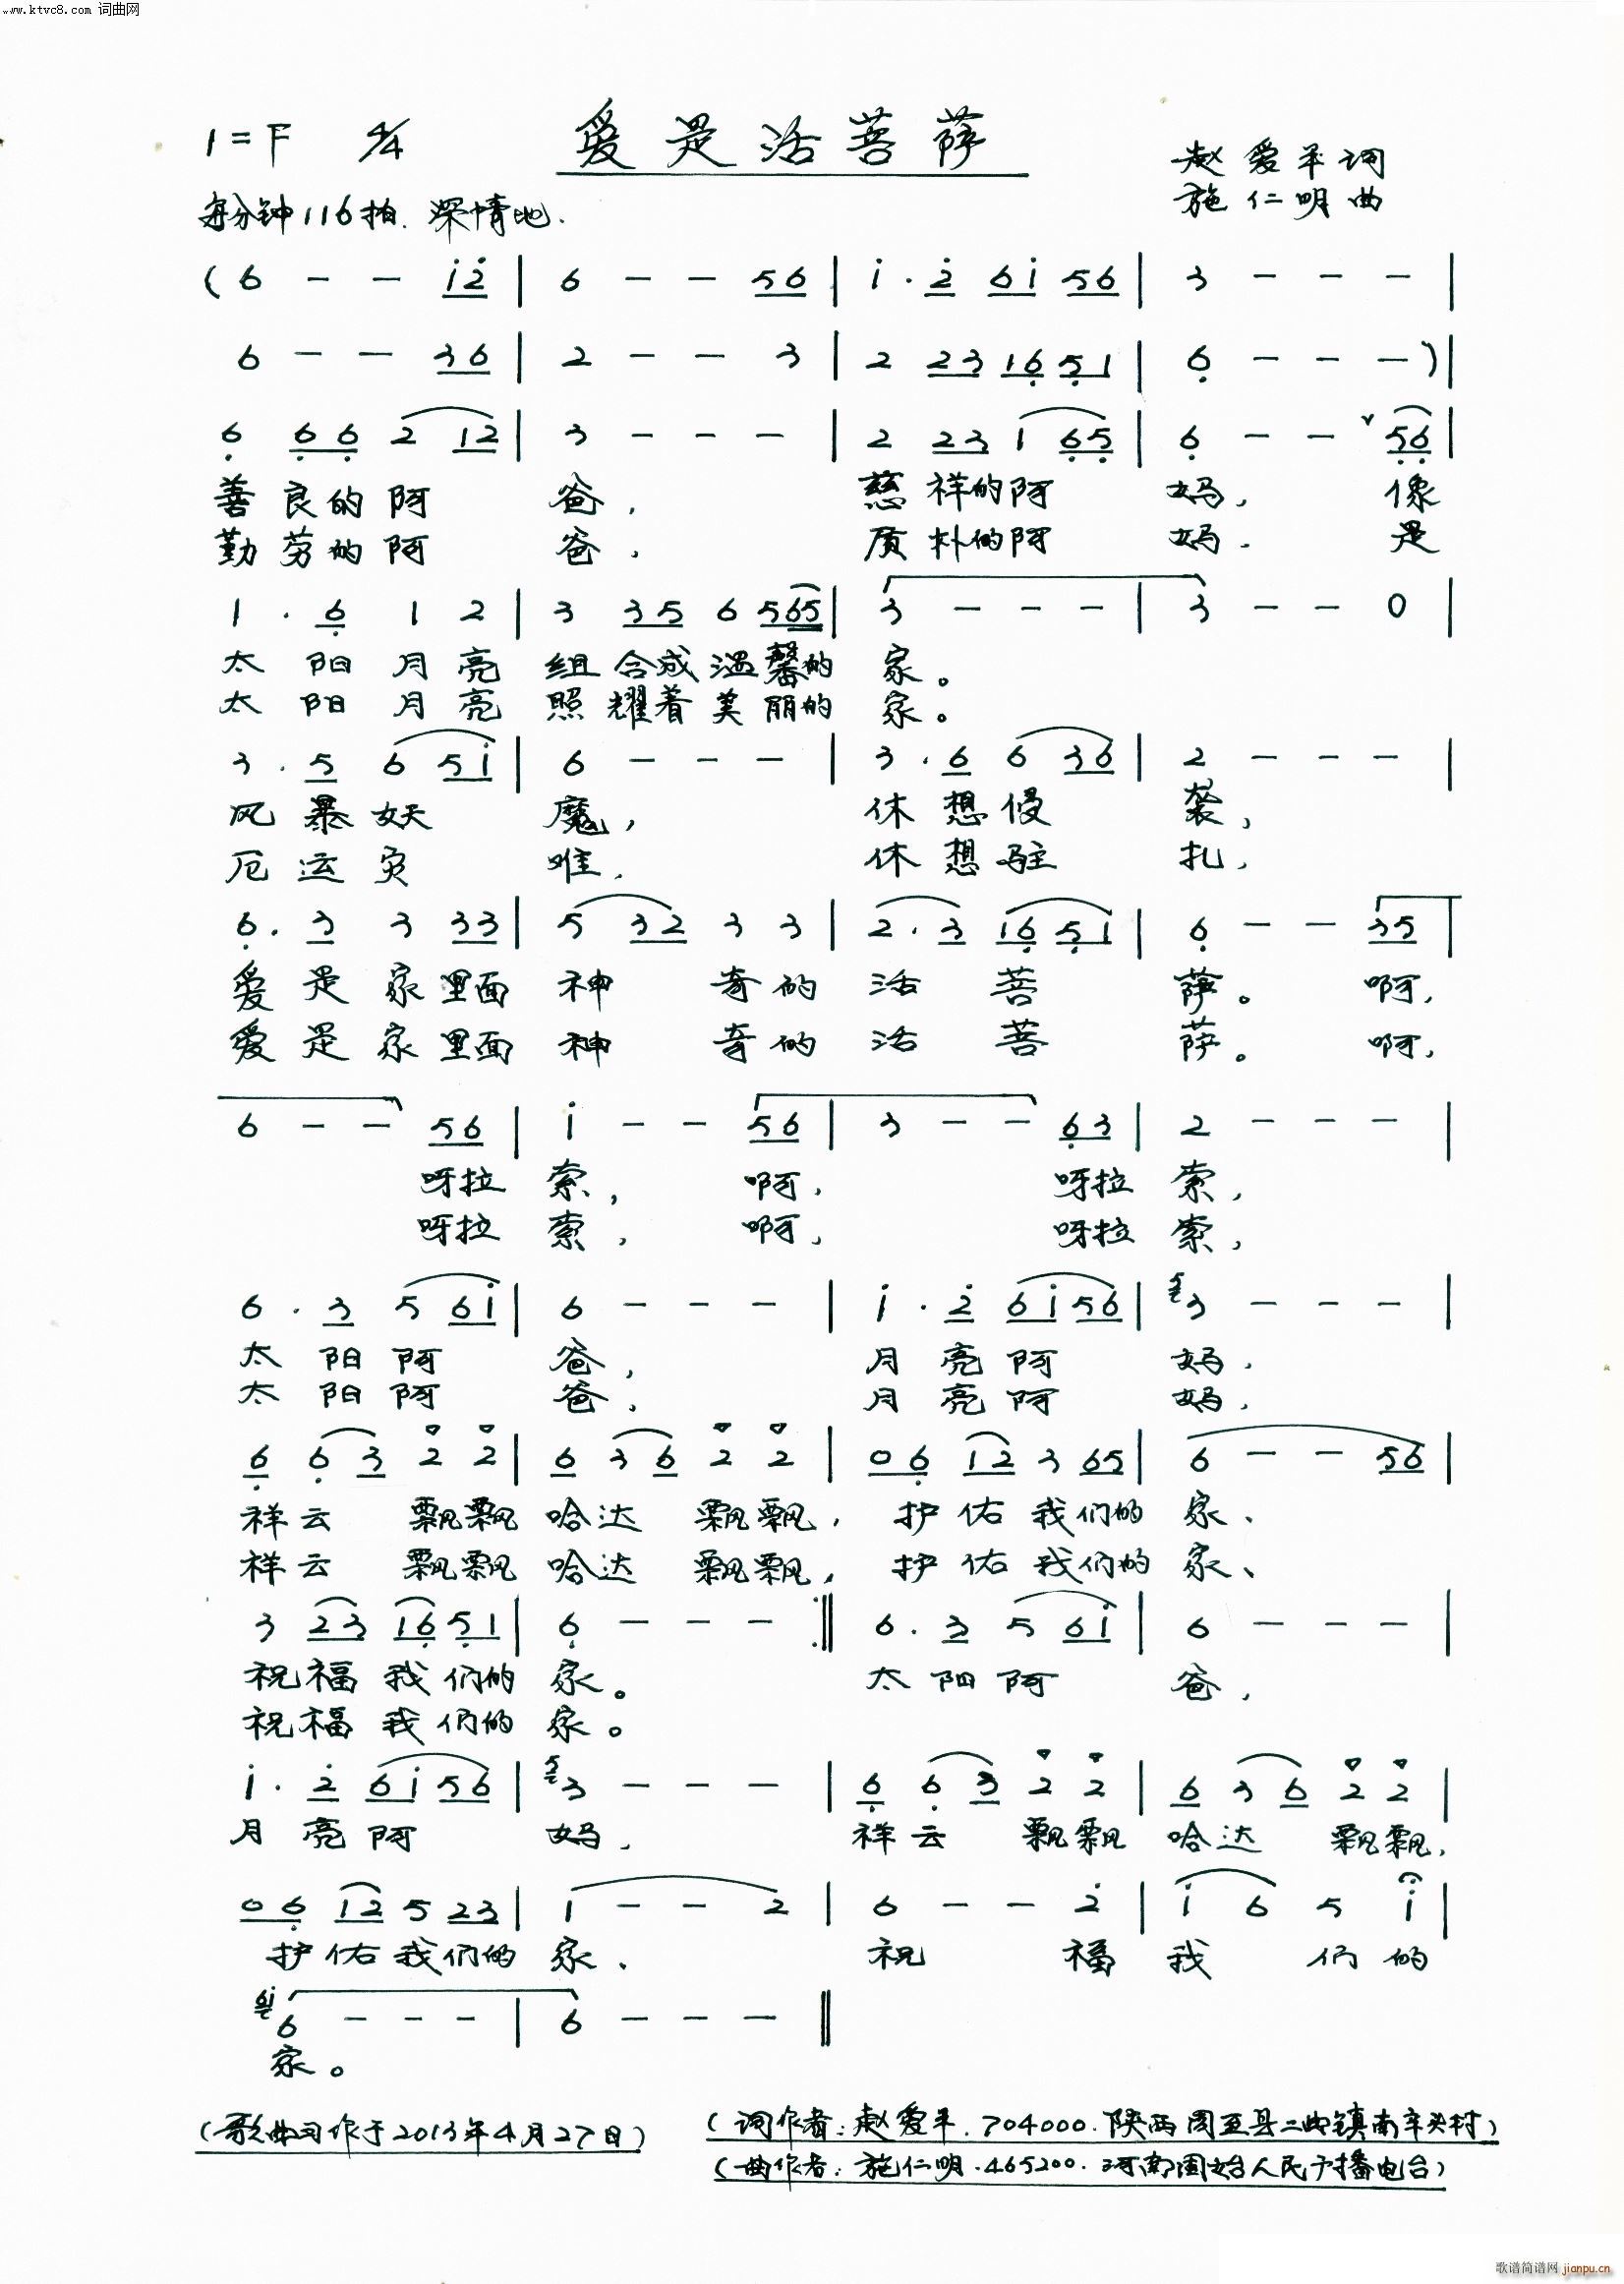 www.ktvc8.com 词曲网
1=F 4/4 爱是活菩萨
赵爱平词
施仁明曲
每分钟116拍. 深情地.
(6 - - i̇2̇ | 6 - - 56 | i̇ · 2̇ 6i̇ 56 | 3 - - - |
6 - - 36 | 2 - - 3 | 2 23 16̣ 5̣1 | 6̣ - - - ) |
6̣ 6̣6̣ 2 12 | 3 - - - | 2 23 1 6̣5̣ | 6̣ - - ∨ 5̣6̣ |
善良的阿 爸, 慈祥的阿 妈, 像
勤劳的阿 爸, 质朴的阿 妈. 是
1 · 6̣ 1 2 | 3 35 6 565 | 3 - - - | 3 - - 0 |
太阳月亮 组合成温馨的 家。
太阳月亮 照耀着美丽的 家。
3 · 5 6 5i̇ | 6 - - - | 3 · 6 6 36 | 2 - - - |
风暴妖 魔, 休想侵 袭,
厄运灾 唯, 休想驻 扎,
6̣ · 3 3 33 | 5 32 3 3 | 2 · 3 16̣ 5̣1 | 6̣ - - 35 |
爱是家里面 神 奇的 活 菩 萨。 啊,
爱是家里面 神 奇的 活 菩 萨。 啊,
6 - - 56 | i̇ - - 56 | 3 - - 6̣3 | 2 - - - |
呀拉 索, 啊, 呀拉 索,
呀拉 索, 啊, 呀拉 索,
6 · 3 5 6i̇ | 6 - - - | i̇ · 2̇ 6i̇ 56 | 5 3 - - - |
太阳阿 爸, 月亮阿 妈.
太阳阿 爸, 月亮阿 妈.
6̣ 6̣ 3 2 2 | 6 3 6 2 2 | 06̣ 12 3 65 | 6 - - 56 |
祥云 飘飘 哈达 飘飘, 护佑我们的 家、
祥云 飘飘 哈达 飘飘, 护佑我们的 家、
3 23 16̣ 5̣1 | 6̣ - - - :‖ 6 · 3 5 6i̇ | 6 - - - |
祝福我们的 家。 太阳阿 爸,
祝福我们的 家。
i̇ · 2̇ 6i̇ 56 | 5 3 - - - | 6̣ 6̣ 3 2 2 | 6 3 6 2 2 |
月亮阿 妈, 祥云 飘飘 哈达 飘飘,
06̣ 12 5 23 | 1 - - 2 | 6 - - 2̇ | i̇ 6 5 i̇ |
护佑我们的 家、 祝 福 我 们的
6i̇ 6 - - - | 6 - - - ‖
家。
(歌曲习作于2013年4月27日)
(词作者: 赵爱平. 704000. 陕西周至县二曲镇南辛头村)
(曲作者: 施仁明. 465200. 河南固始人民广播电台)
歌谱简谱网 jianpu.cn